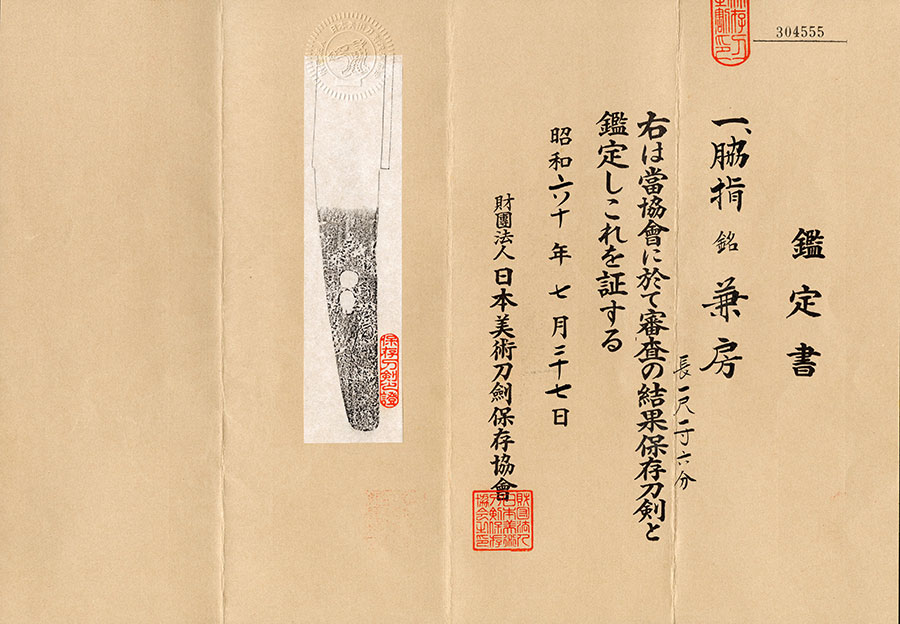 304555
鑑定書
一、脇指 銘 兼房
長一尺二寸六分
右は當協會に於て審査の結果保存刀剣と
鑑定しこれを証する
昭和六十年七月二十七日
財團法人 日本美術刀劍保存協會
財団法人
日本美術
刀剣保存
協会之印
保存刀剣之證